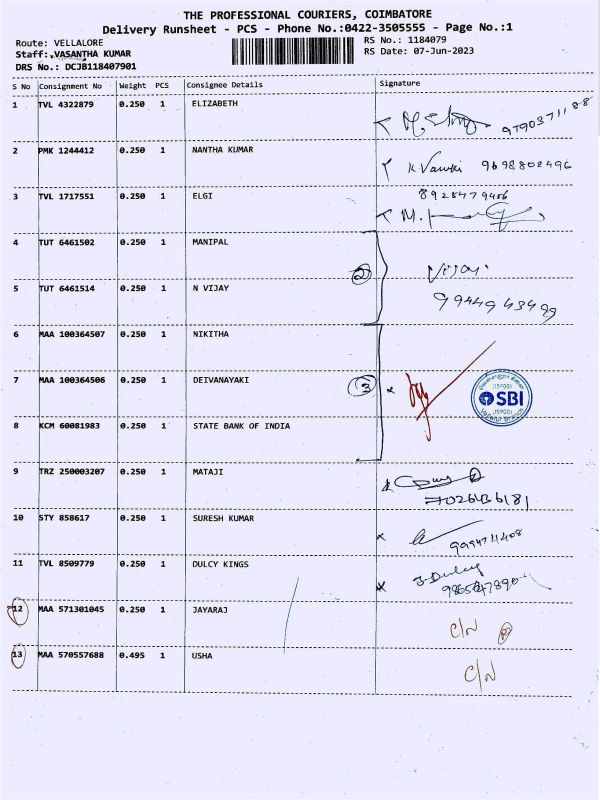 THE PROFESSIONAL COURIERS, COIMBATORE
Delivery Runsheet - PCS - Phone No.:0422-3505555 - Page No.:1
Route: VELLALORE RS No.: 1184079
Staff: VASANTHA KUMAR RS Date: 07-Jun-2023
DRS No.: DCJB118407901
S No Consignment No Weight PCS Consignee Details Signature
1 TVL 4322879 0.250 1 ELIZABETH
2 PMK 1244412 0.250 1 NANTHA KUMAR
9698802496
3 TVL 1717551 0.250 1 ELGI
4 TUT 6461502 0.250 1 MANIPAL
2 Vijay
5 TUT 6461514 0.250 1 N VIJAY
9944943499
6 MAA 100364507 0.250 1 NIKITHA
7 MAA 100364506 0.250 1 DEIVANAYAKI
3 SBI
8 KCM 60081983 0.250 1 STATE BANK OF INDIA
9 TRZ 250003207 0.250 1 MATAJI
10 STY 858617 0.250 1 SURESH KUMAR
11 TVL 8509779 0.250 1 DULCY KINGS
J. Dulcy
12 MAA 571301045 0.250 1 JAYARAJ
C/N
13 MAA 570557688 0.495 1 USHA
C/N